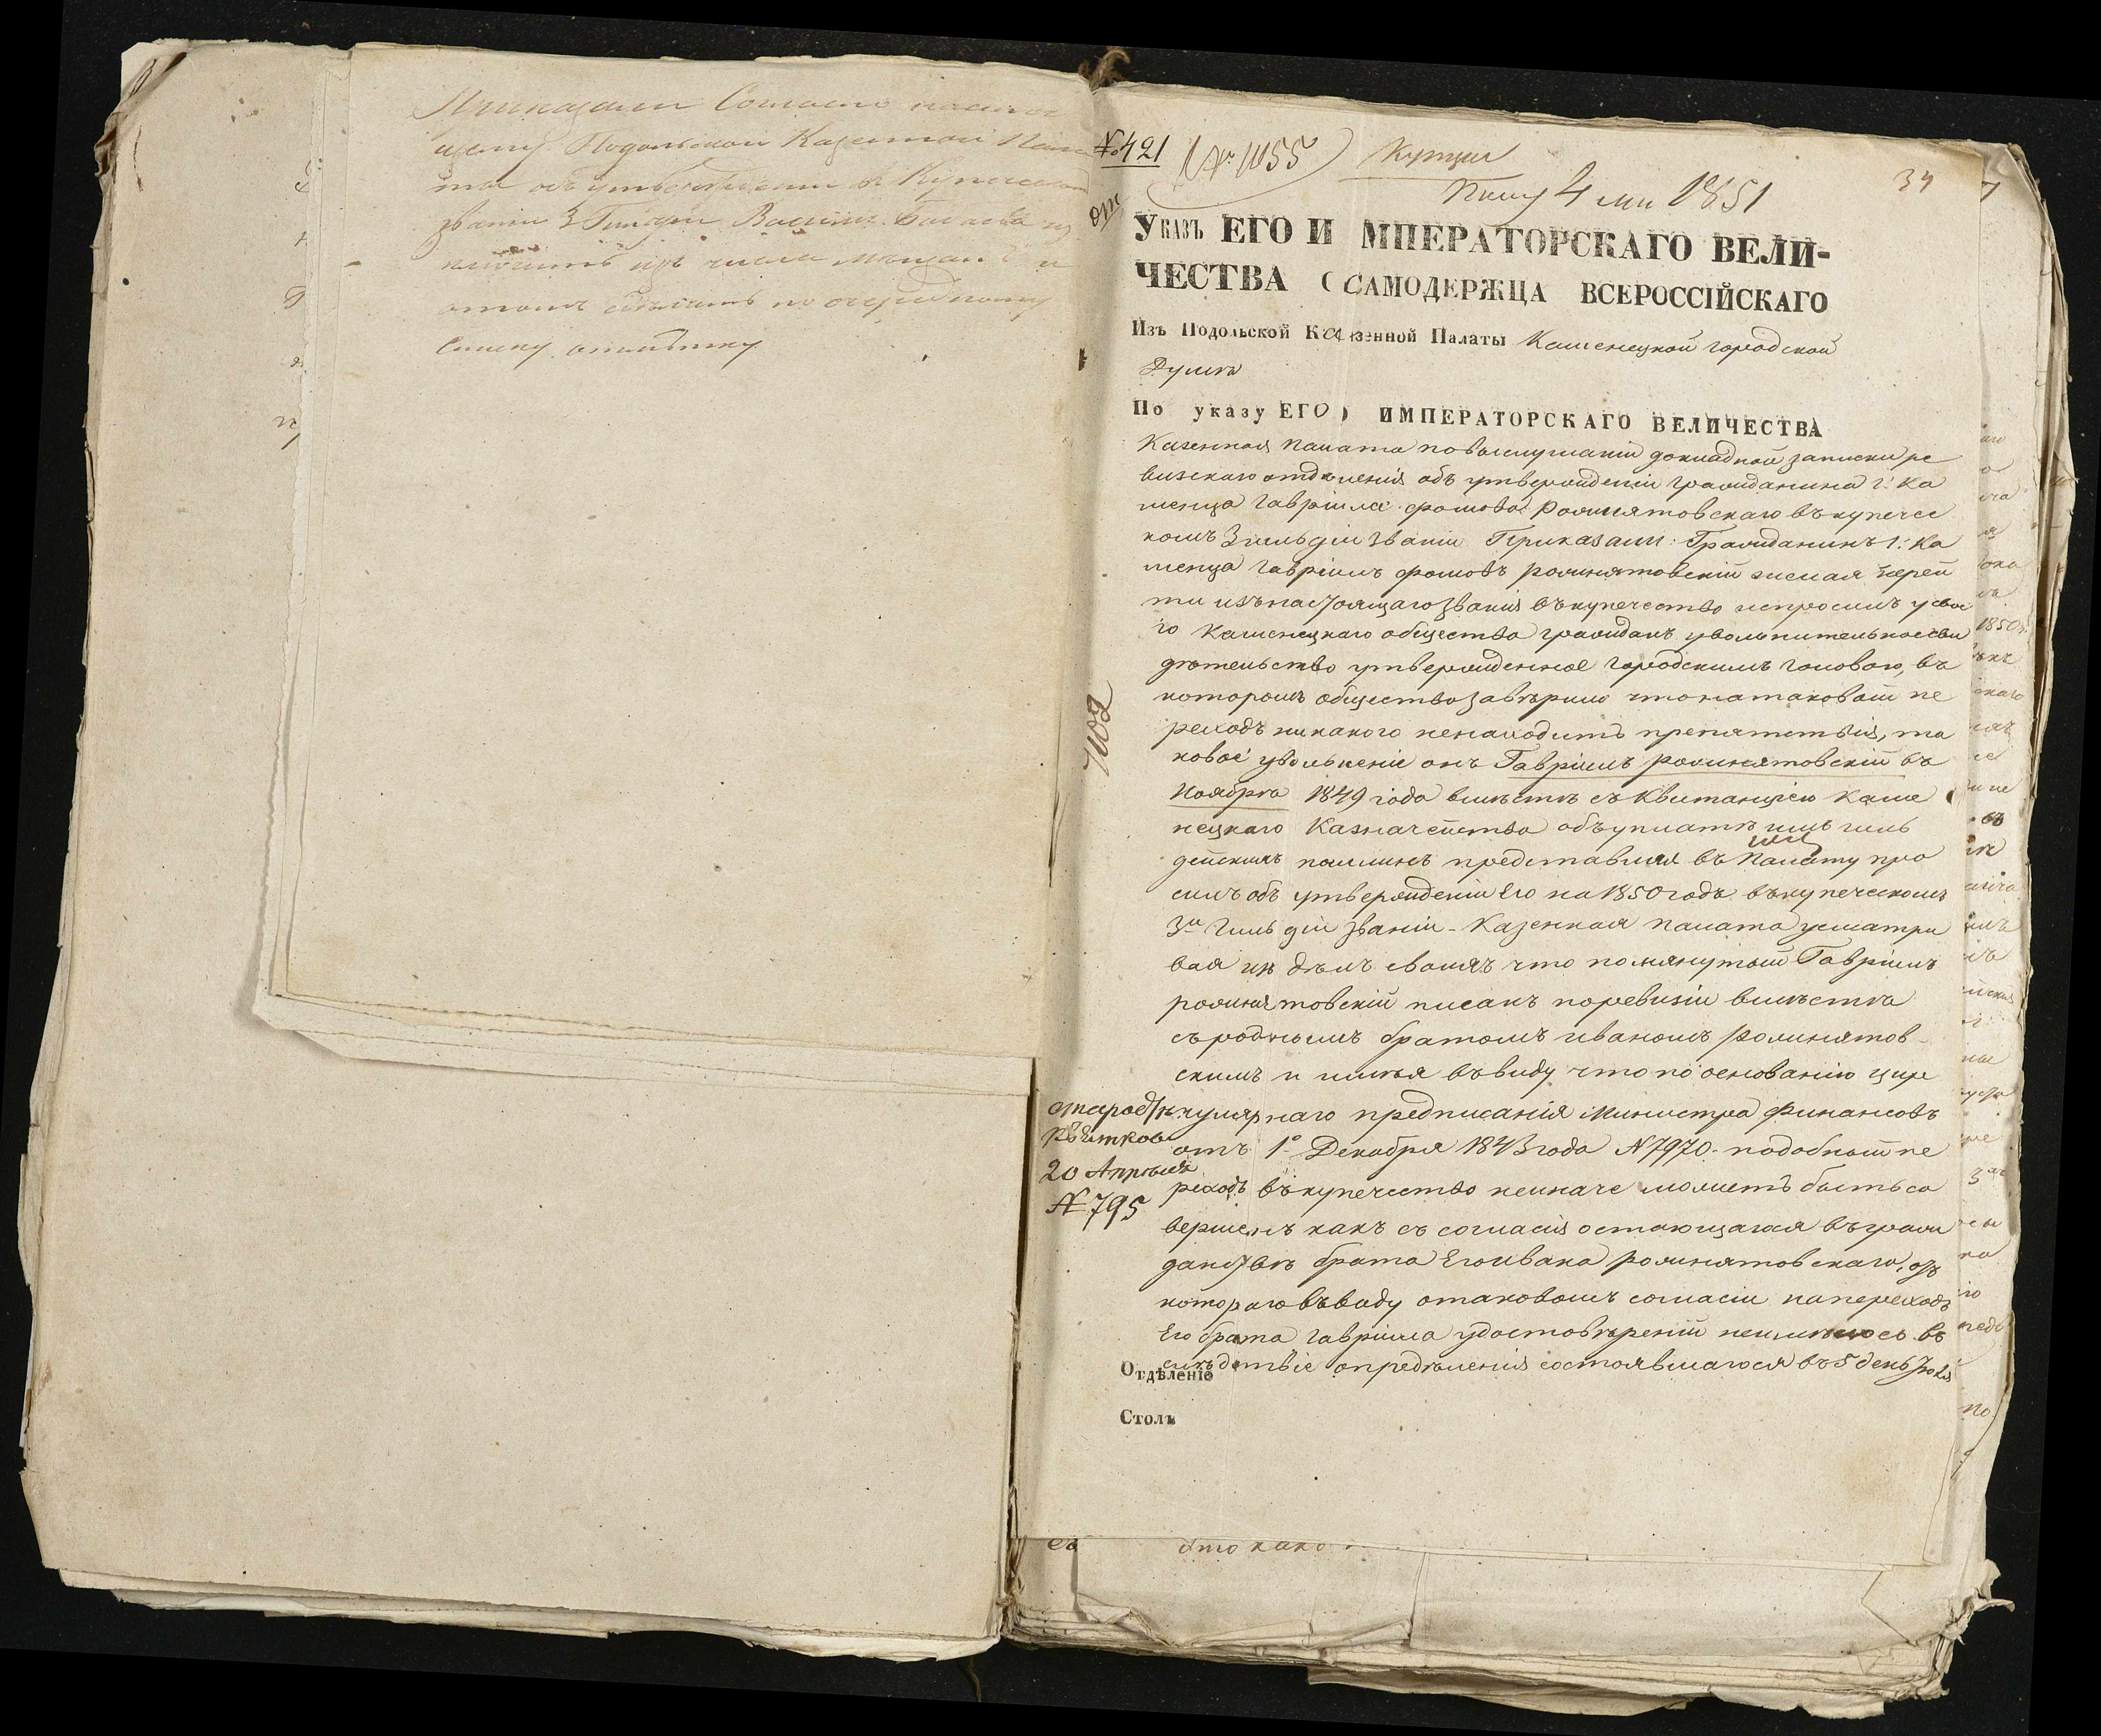 Приказали Согласно настоя
щему Подольской Казенной Пала
ты объ утвержденіи въ Купеческом
званіи 3 Гильдіи
ключить изъ числа мещанъ и
отомъ объявить по очередному
списку
№ 421
(№ 1055)
Купцы
34
Полу 4 мая 1851
Указъ ЕГО ИМПЕРАТОРСКАГО ВЕЛИ-
ЧЕСТВА САМОДЕРЖЦА ВСЕРОССІЙСКАГО
Изъ Подольской Казенной Палаты Каменецкой городской
Думѣ
По указу ЕГО ИМПЕРАТОРСКАГО ВЕЛИЧЕСТВА
Казенная Палата по выслушаніи докладной записки ре
визскаго отдѣленія объ утвержденіи гражданина г. Ка
менца Гавріила фомова Рожнятовскаго въ купечес
комъ 3 гильдіи званіи Приказали: Гражданинъ г. Ка
менца Гавріилъ фомовъ рожнятовскій желая перей
ти изъ настоящаго званія въ купечество испросилъ у свое
го Каменецкаго общества гражданъ увольнительное сви
дѣтельство утвержденное городскимъ головою, въ
которомъ общество завѣрило что на таковый пе
реходъ никакого ненаходитъ препятствія, та
ковое увольненіе онъ Гавріилъ рожнятовскій въ
Ноябрѣ 1849 года вмѣстѣ съ Квитанціею Каме
нецкаго Казначейства объ уплатѣ имъ гиль
дейскихъ пошлинъ представилъ въ Палату про
силъ объ утвержденіи Его на 1850 годъ въ купеческомъ
3й Гильдіи званіи - Казенная палата усматри
вая изъ дѣлъ своихъ что помянутый Гавріилъ
рожнятовскій писанъ по ревизіи вмѣстѣ
съ роднымъ братомъ иваномъ рожнятов-
скимъ и имѣя въ виду что по основанію цир
кулярнаго предписанія Министра Финансовъ
отъ 1го Декабря 1843 года № 7970. подобный пе
реходъ въ купечество неиначе можетъ быть со
вершенъ какъ съ согласія остающагося въ граж
данствѣ брата Его ивана рожнятовскаго, отъ
котораго въ виду о таковомъ согласіи на переходъ
Его брата Гавріила удостовѣреній неимѣлось въ
слѣдствіе опредѣленія состоявшагося въ 5 день Іюля
20 Апрѣля
№ 795
1102
Отдѣленіе
Столъ